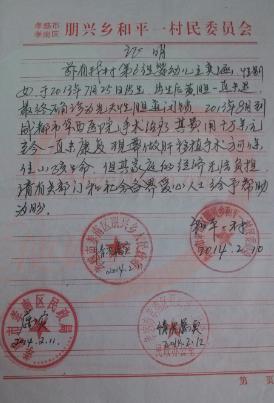 孝感市
孝南区 朋兴乡和平一村民委员会
证明
兹有我村第6组婴幼儿 性别
女，于2013年7月25日出生，出生后黄疸一直未退，
最终确诊为先天性胆道闭锁，2013年9月到
成都市华西医院手术治疗，其费用十万余元
至今一直未康复，现需做肝移植手术才可保
住小孩生命，但其家庭的经济无法负担，
请有关部门和社会各界爱心人士给予帮助
为盼。
情况属实
2014.2.11
和平一村
2014.2.10
属实
2014.2.11.
情况属实
2014.2.12
第 页